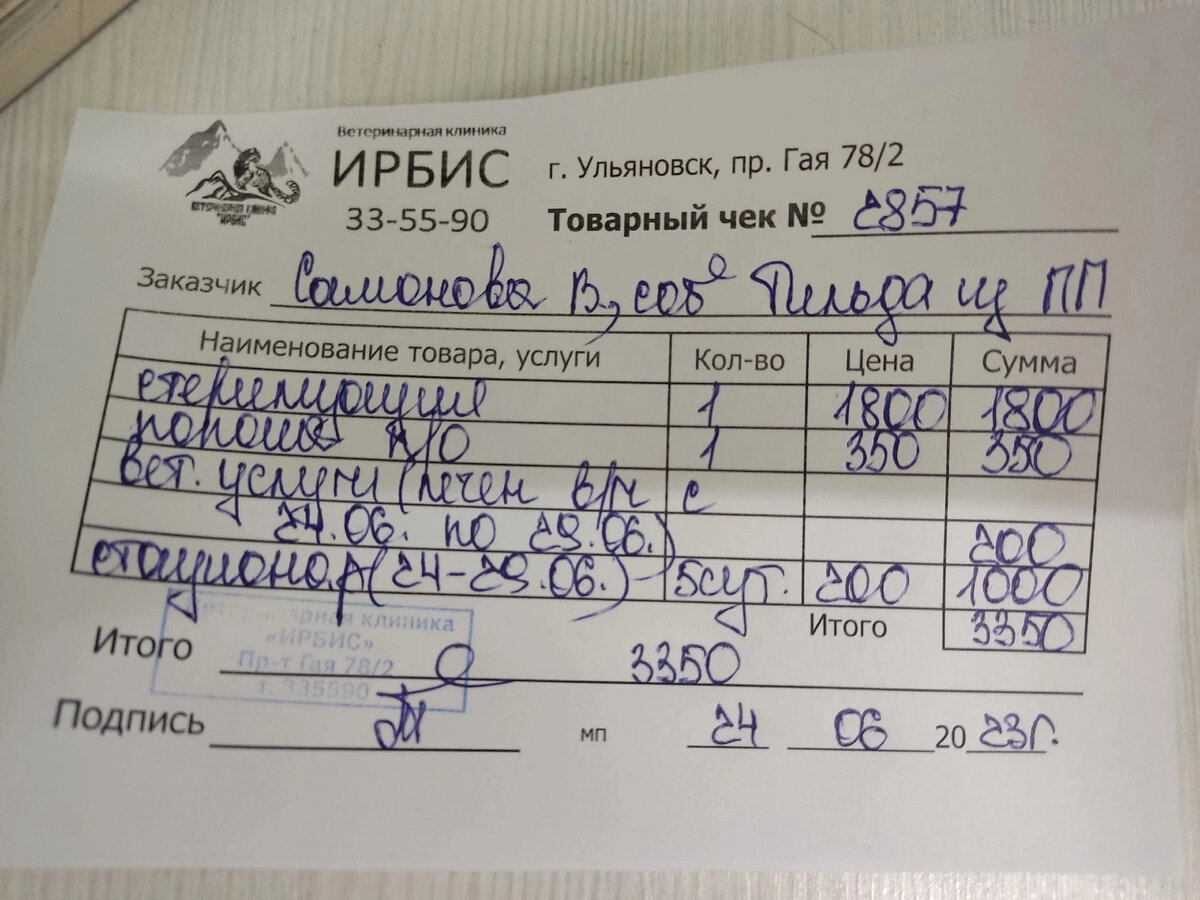 Ветеринарная клиника
ИРБИС
33-55-90
ВЕТЕРИНАРНАЯ КЛИНИКА
"ИРБИС"
г. Ульяновск, пр. Гая 78/2
Товарный чек № 2857
Заказчик Самонова В, соб Гильда из ПП
Наименование товара, услуги Кол-во Цена Сумма
стерилизация 1 1800 1800
попона п/о 1 350 350
вет. услуги (лечен в/м с
24.06. по 29.06.) 200
стационар (24-29.06.) 5сут. 200 1000
Итого 3350
Итого 3350
Ветеринарная клиника
«ИРБИС»
Пр-т Гая 78/2
т. 335590
Подпись мп 24 06 2023г.